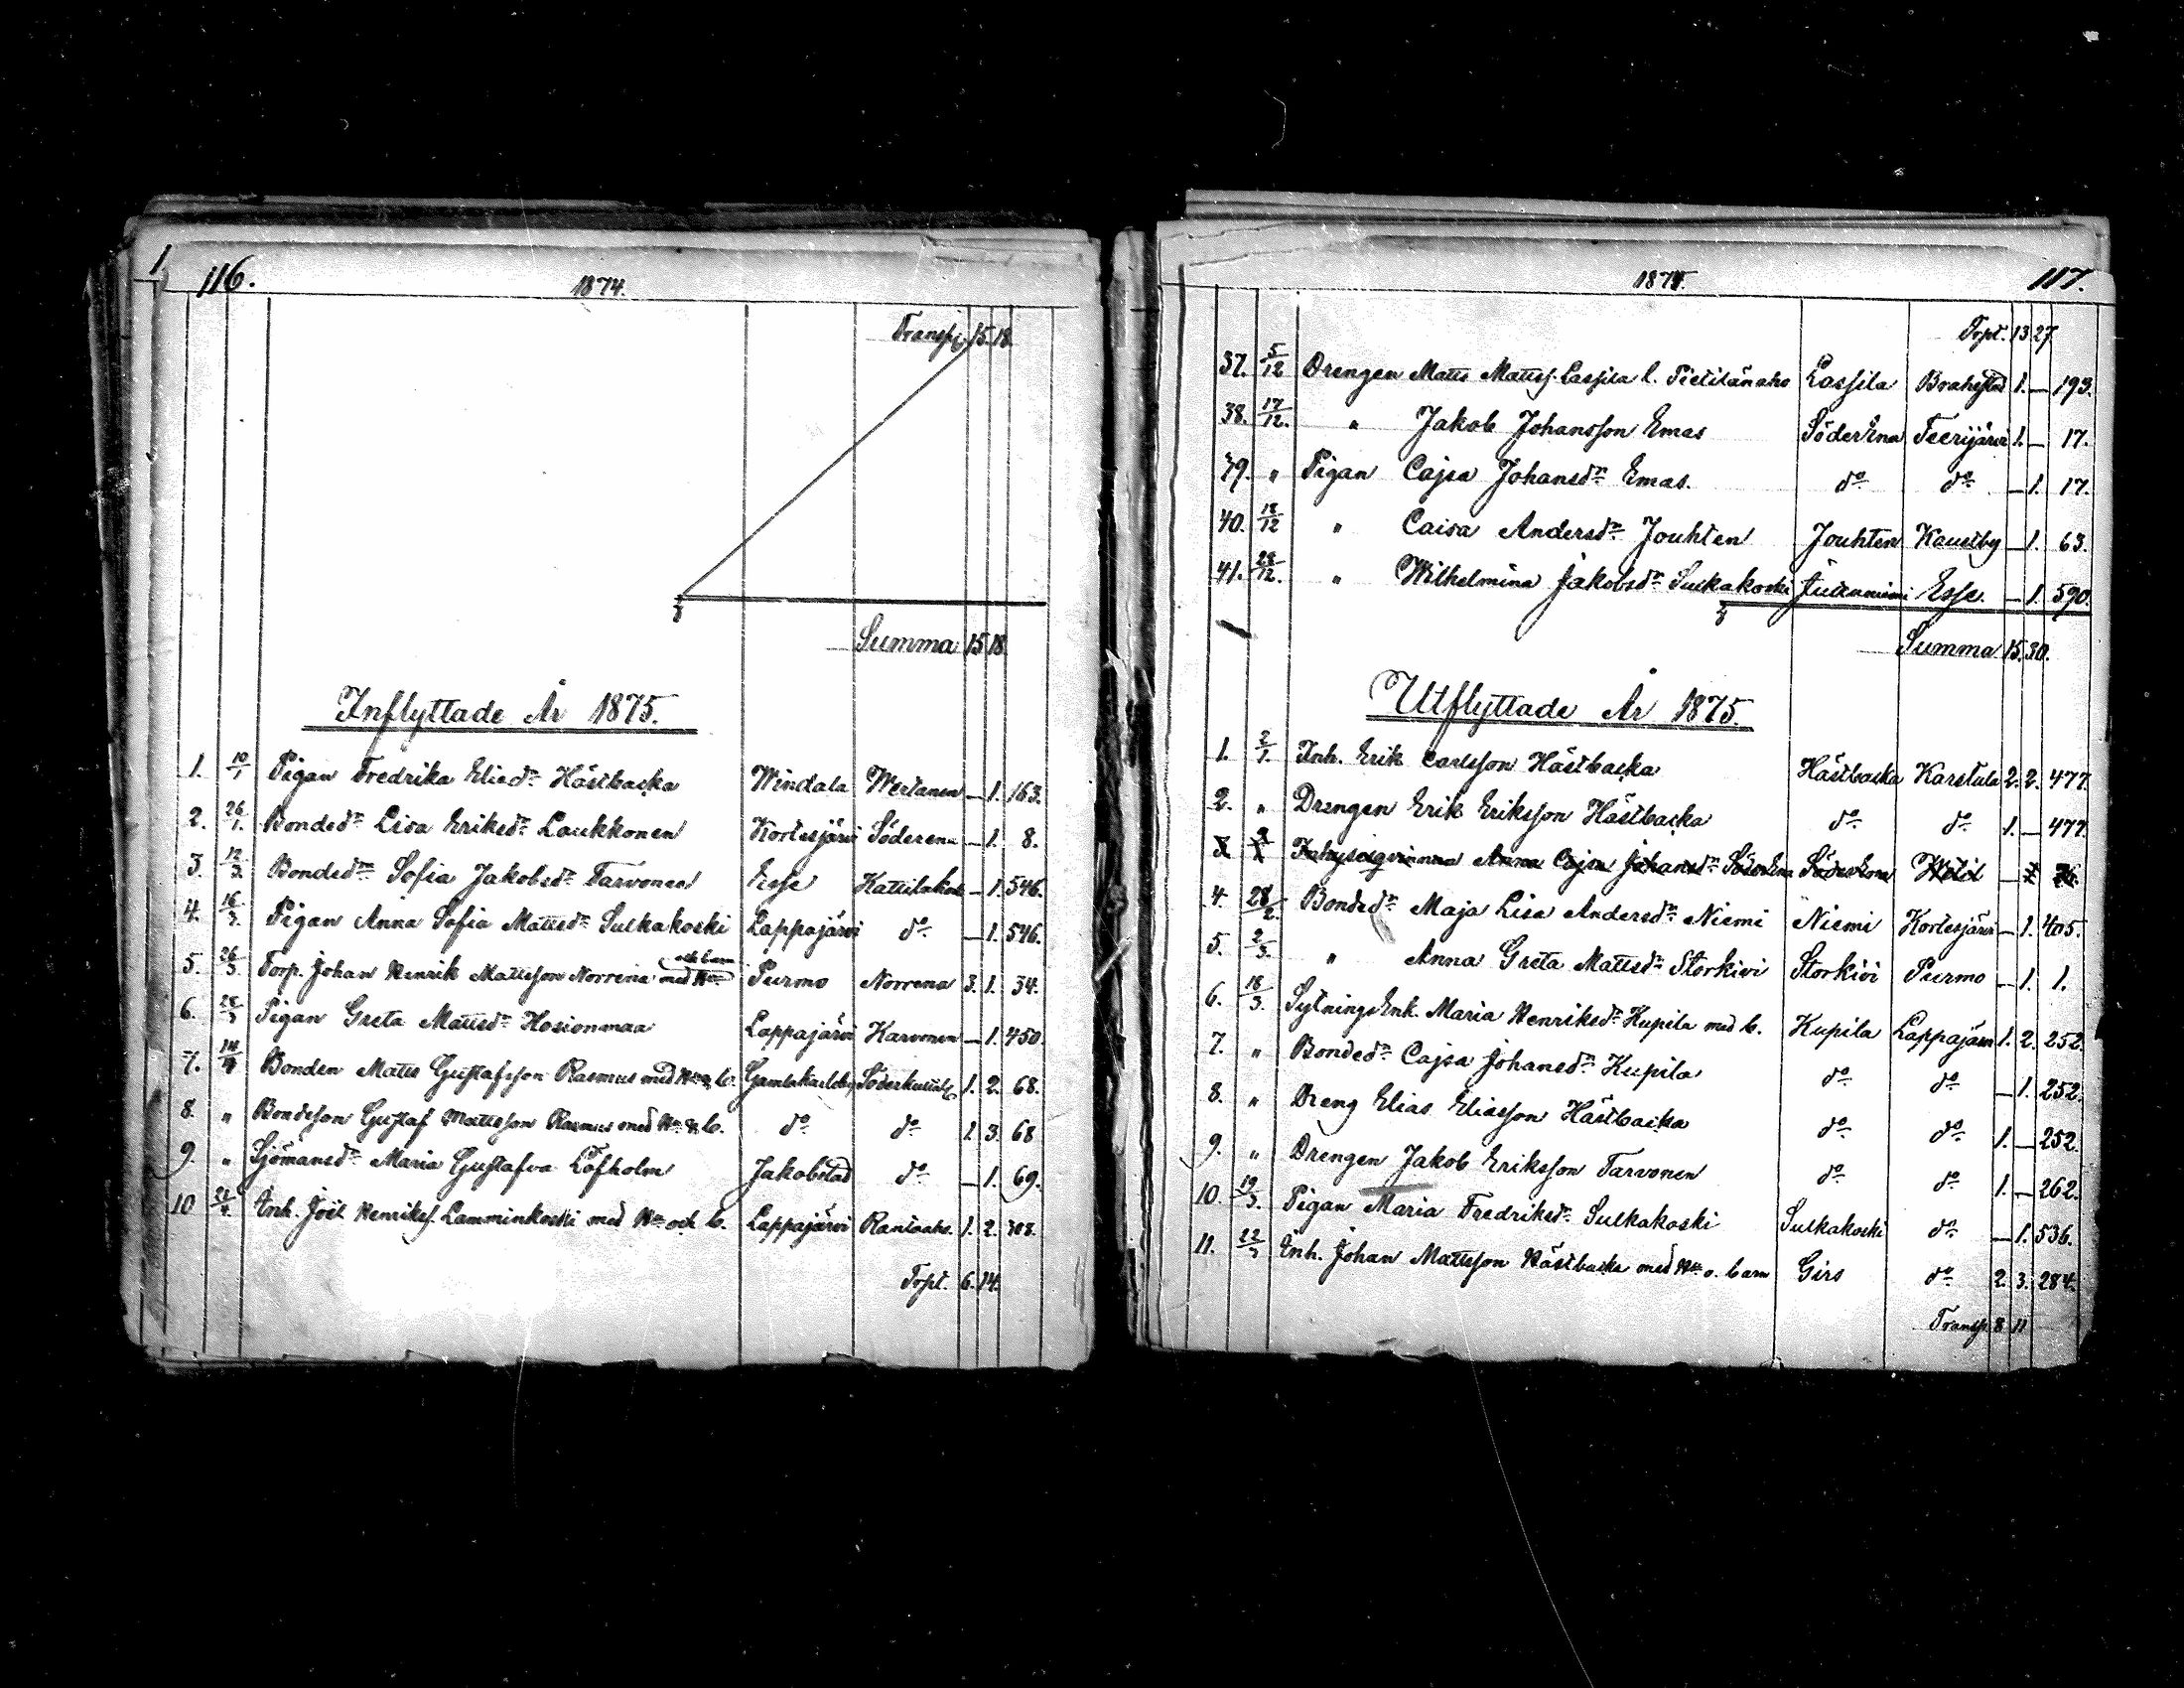 1
116.
1874.
Transp. 15. 18.
Summa 15 18.
Inflyttade År 1875.
1. 10/1 Pigan Fredrika Eliedr Hästbacka Windala Wertanen — 1. 163.
2. 26/1. Bondedr Lisa Eriksdr Laukkonen Kortesjärvi Söderena — 1. 8.
3. 12/3. Bondedr Sofia Jakobsdr Tarvonen Esse — 1. 546.
4. 16/3. Pigan Anna Sofia Mattsdr Sulkakoski Lappajärvi do — 1. 546.
och barn
5. 26/3. Torp. Johan Henrik Mattsson Norrena med Purmo Norrena 3. 1. 34.
6. Pigan Greta Mattsdr Hosionmaa Lappajärvi Karvonen — 1. 450.
7. Bonden Matts Gustafsson Rasmus med b. Gamlakarleby 1. 2. 68.
8. " Bondeson Gustaf Mattsson Rasmus med b. do do 1. 3. 68
9. " Sjömansdr Maria Gustafva Löfholm Jakobstad do — 1. 69.
10 Inh. Joël Henrikss. Lamminkoski med och b. Lappajärvi Rantaaho. 1. 2. 308.
Trpt. 6. 14.
1874.
117.
Trpt. 13 27
37. 5/12 Drengen Matts Mattss. Lassila l. Pietilänaho Lassila Brahestad 1. — 193.
38. 17/12. " Jakob Johansson Emas SöderEna Teerijärvi 1. — 17.
39. " Pigan Cajsa Johansdr Emas. do do — 1. 17.
40. 18/12 " Caisa Andersdr Jouhten Jouhten Kaustby — 1. 63.
41. 28/12. " Wilhelmina Jakobsdr Sulkakoski Esse. — 1. 590.
Summa 15. 30.
Utflyttade År 1875.
1. 2/1. Inh. Erik Carlsson Hästbacka Hästbacka Karstula 2. 2. 477.
2. " Drengen Erik Eriksson Hästbacka do do 1. — 477.
3 Inhysesqvinnan Anna Cajsa Johansdr SöderEna SöderEna Witil — 1 76.
4. 28/2. Bondedr Maja Lisa Andersdr Niemi Niemi Kortesjärvi — 1. 405.
5. 2/3. " Anna Greta Mattsdr Storkivi Storkivi Purmo — 1. 1.
6. 18/3. SytningsEnk. Maria Henriksdr Kupila med b. Kupila Lappajärvi 1. 2. 252.
7. " Bondedr Cajsa Johansdr Kupila do do — 1. 252.
8. " Dreng Elias Eliasson Hästbacka do do 1. — 252.
9. " Drengen Jakob Eriksson Tarvonen do do 1. — 262.
10. 19/3. Pigan Maria Fredriksdr Sulkakoski Sulkakoski do — 1. 536.
11. 22/3 Inh. Johan Mattsson Hästbacka med o. barn Girs do 2. 3. 284.
Transp. 8 11